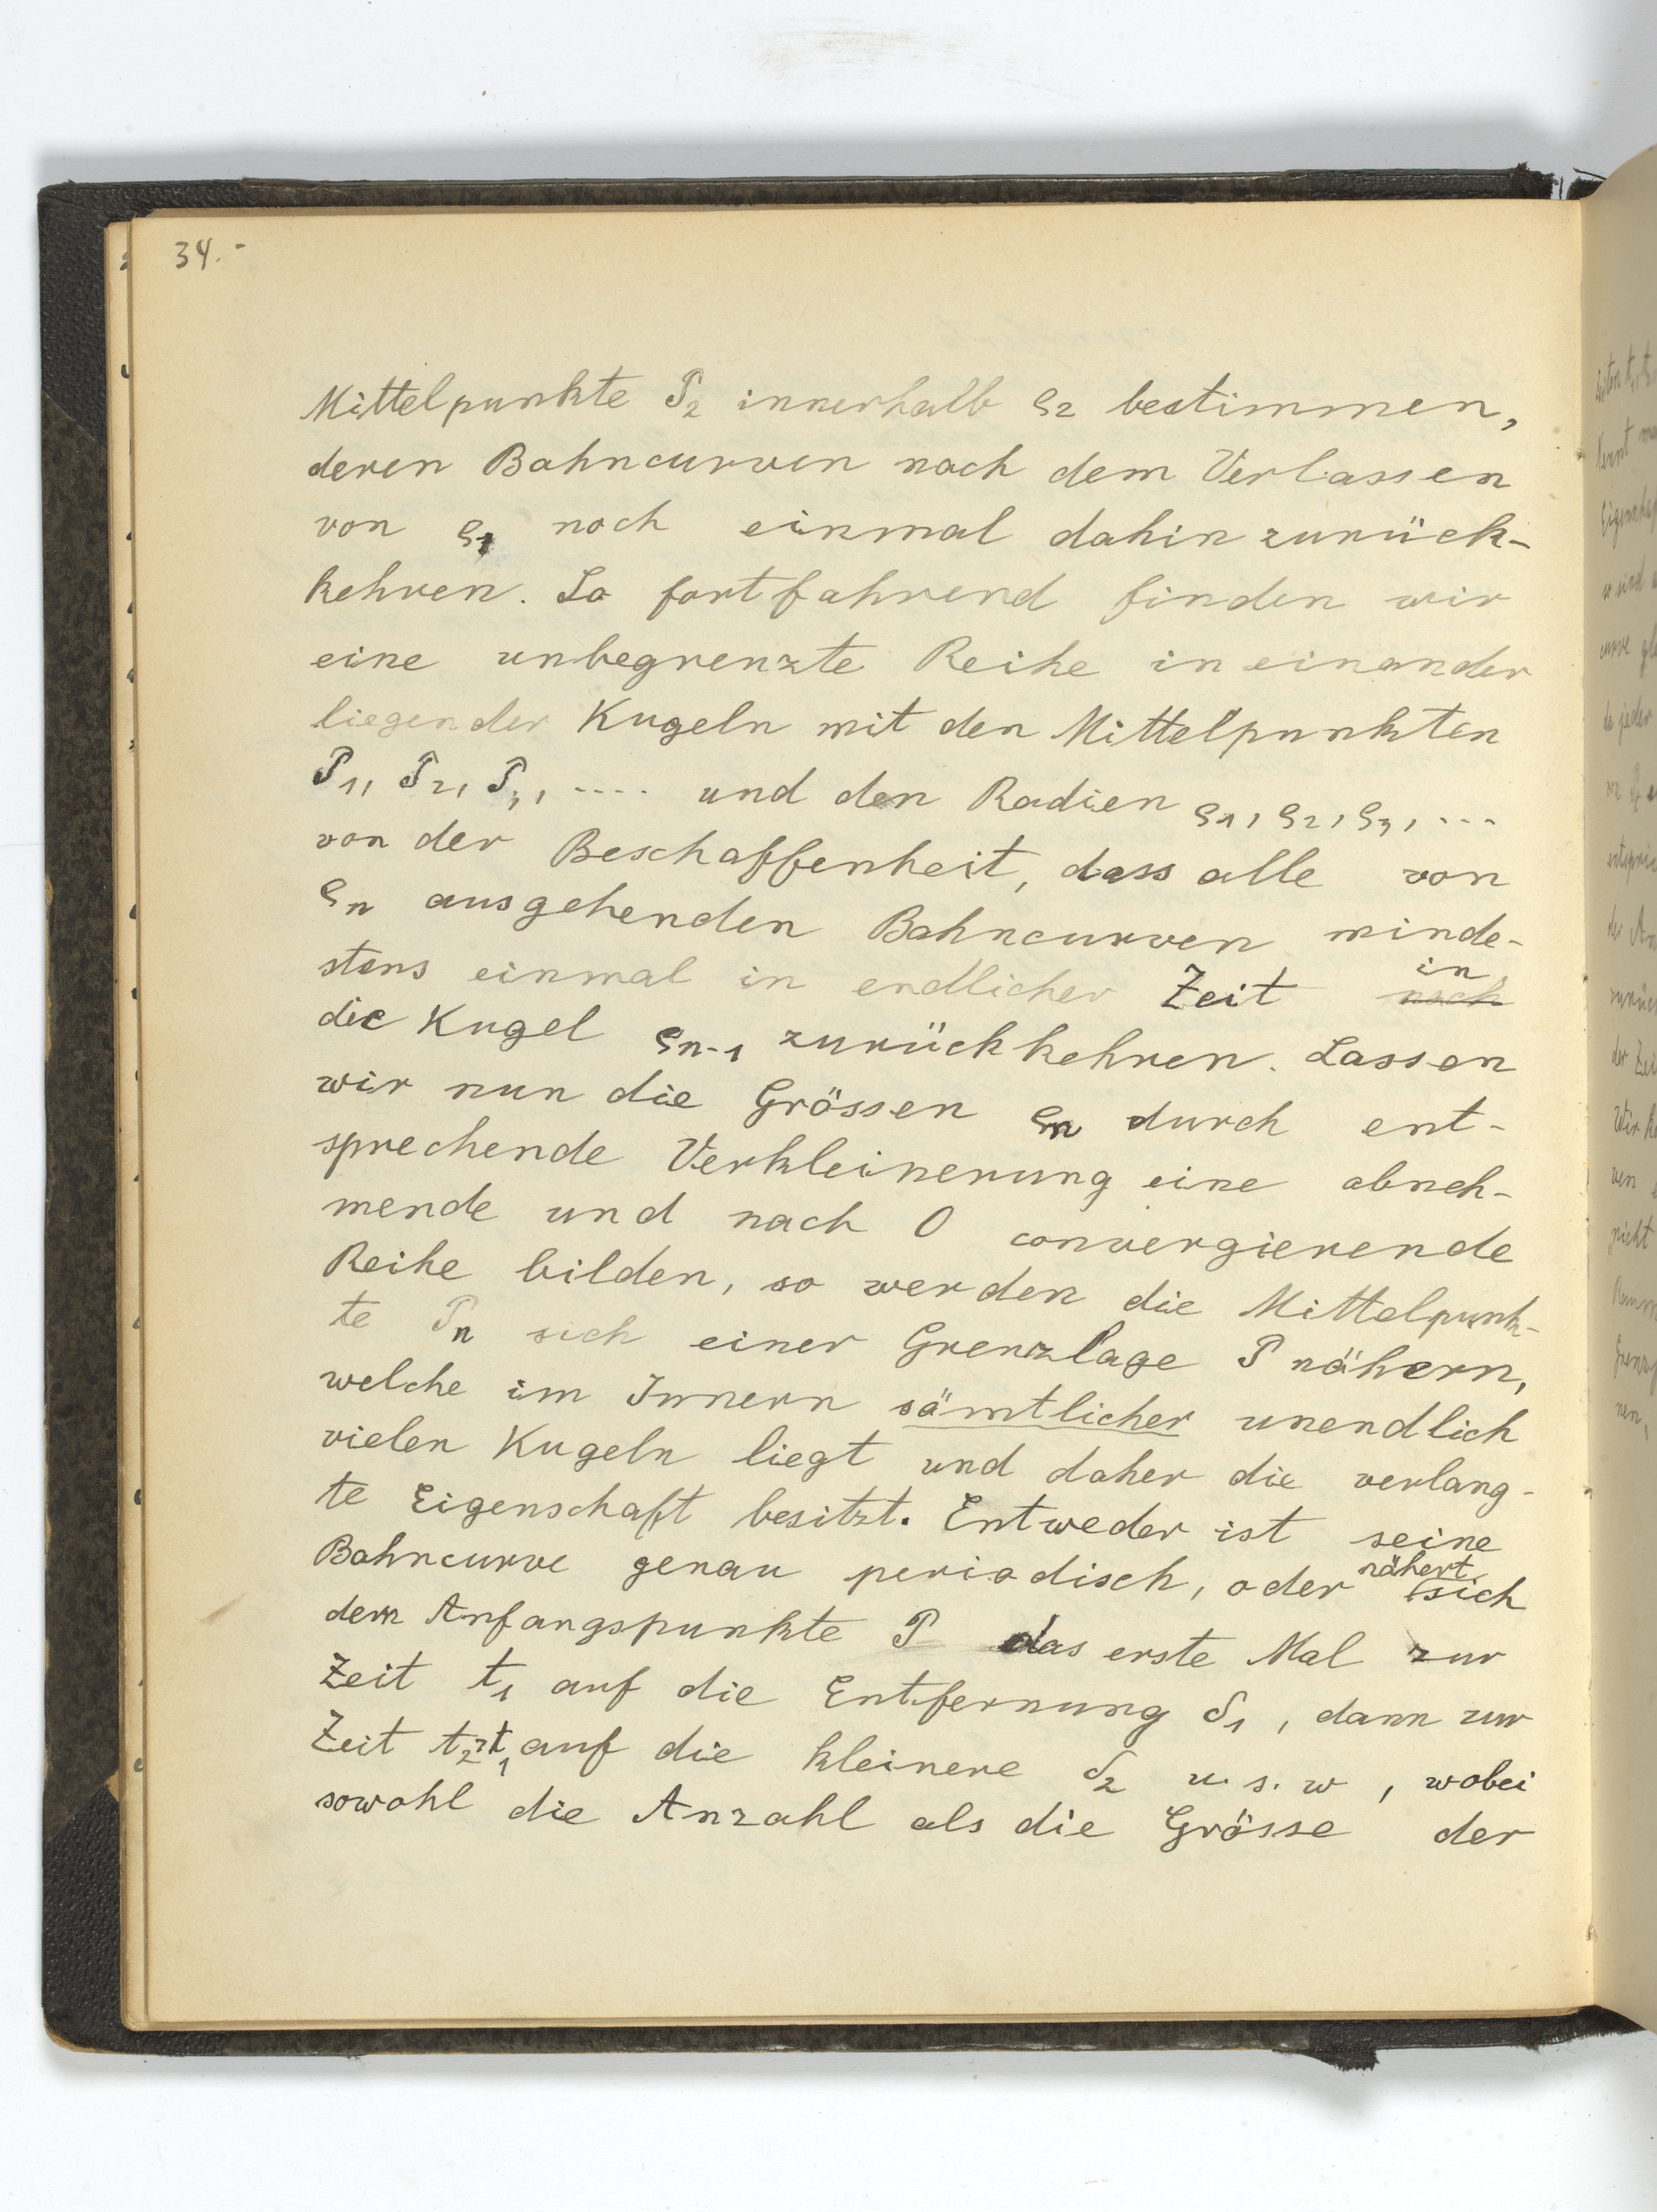 34.-
Mittelpunkte P₂ innerhalb ϱ₂ bestimmen,
deren Bahncurven nach dem Verlassen
von ϱ₁ noch einmal dahin zurück-
kehren. So fortfahrend finden wir
eine unbegrenzte Reihe in einander
liegender Kugeln mit den Mittelpunkten
P₁, P₂, P₃, .... und den Radien ϱ₁, ϱ₂, ϱ₃, ...
von der Beschaffenheit, dass alle von
ϱₙ ausgehenden Bahncurven minde-
stens einmal in endlicher Zeit ~~nach~~ in
die Kugel ϱₙ₋₁ zurückkehren. Lassen
wir nun die Grössen ϱₙ durch ent-
sprechende Verkleinerung eine abneh-
mende und nach 0 convergierende
Reihe bilden, so werden die Mittelpunk-
te Pₙ sich einer Grenzlage P nähern,
welche im Innern sämtlicher unendlich
vielen Kugeln liegt und daher die verlang-
te Eigenschaft besitzt. Entweder ist seine
Bahncurve genau periodisch, oder nähert sich
dem Anfangspunkte P das erste Mal zur
Zeit t₁ auf die Entfernung δ₁, dann zur
Zeit t₂>t₁ auf die kleinere δ₂ u. s. w, wobei
sowohl die Anzahl als die Grösse der